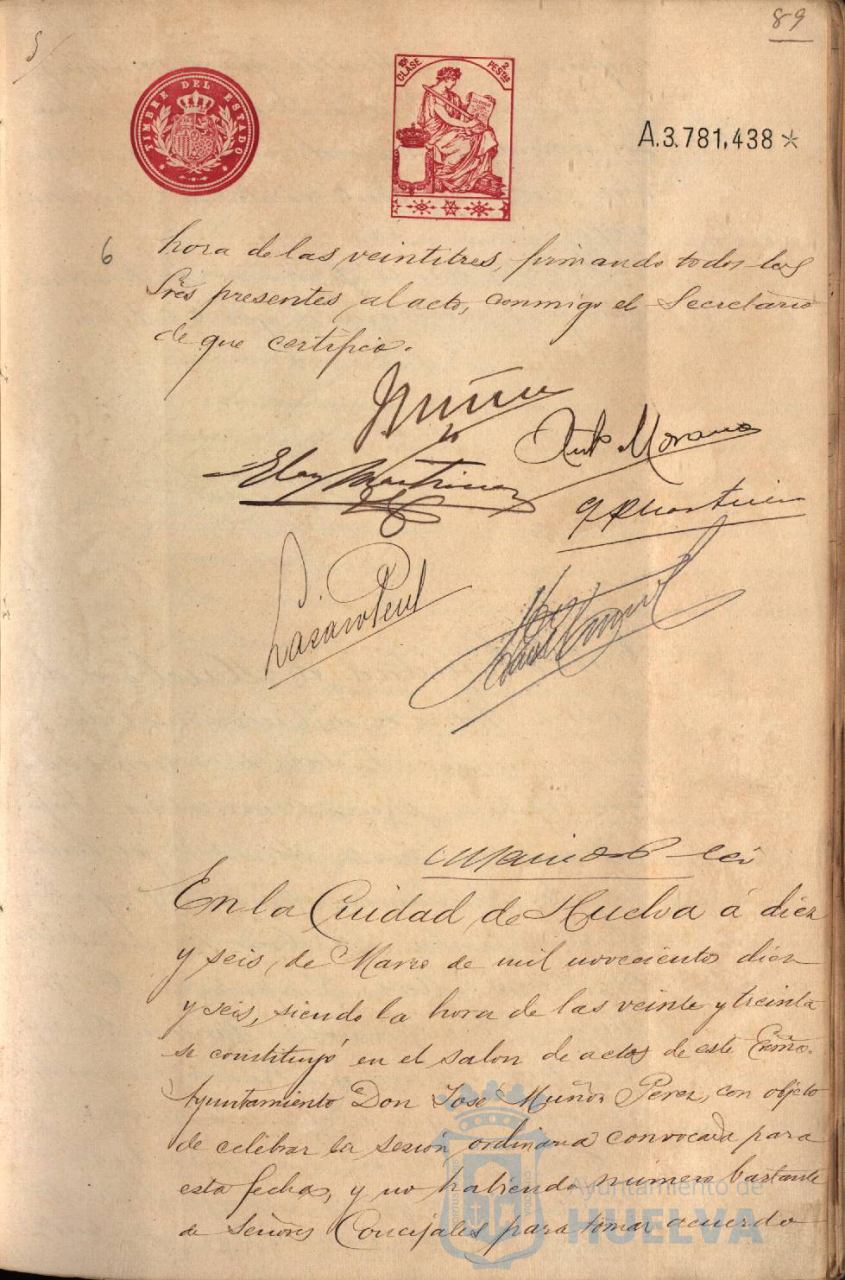 89
TIMBRE DEL ESTADO
10ª CLASE 2 PESTAS
A.3.781,438 *
6
hora de las veintitres, firmando todos los
Sres presentes al acto, conmigo el Secretario
de que certifico.
Muñoz
Antº Moreno
Eloy Martinez
Lazaro Perul
En la Ciudad de Huelva á diez
y seis de Marzo de mil novecientos diez
y seis, siendo la hora de las veinte y treinta
se constituyó en el salon de actos de este Excmo.
Ayuntamiento Don José Muñoz Perez, con objeto
de celebrar la sesion ordinaria convocada para
esta fecha, y no habiendo numero bastante
de Señores Concejales para tomar acuerdo
Ayuntamiento de
HUELVA